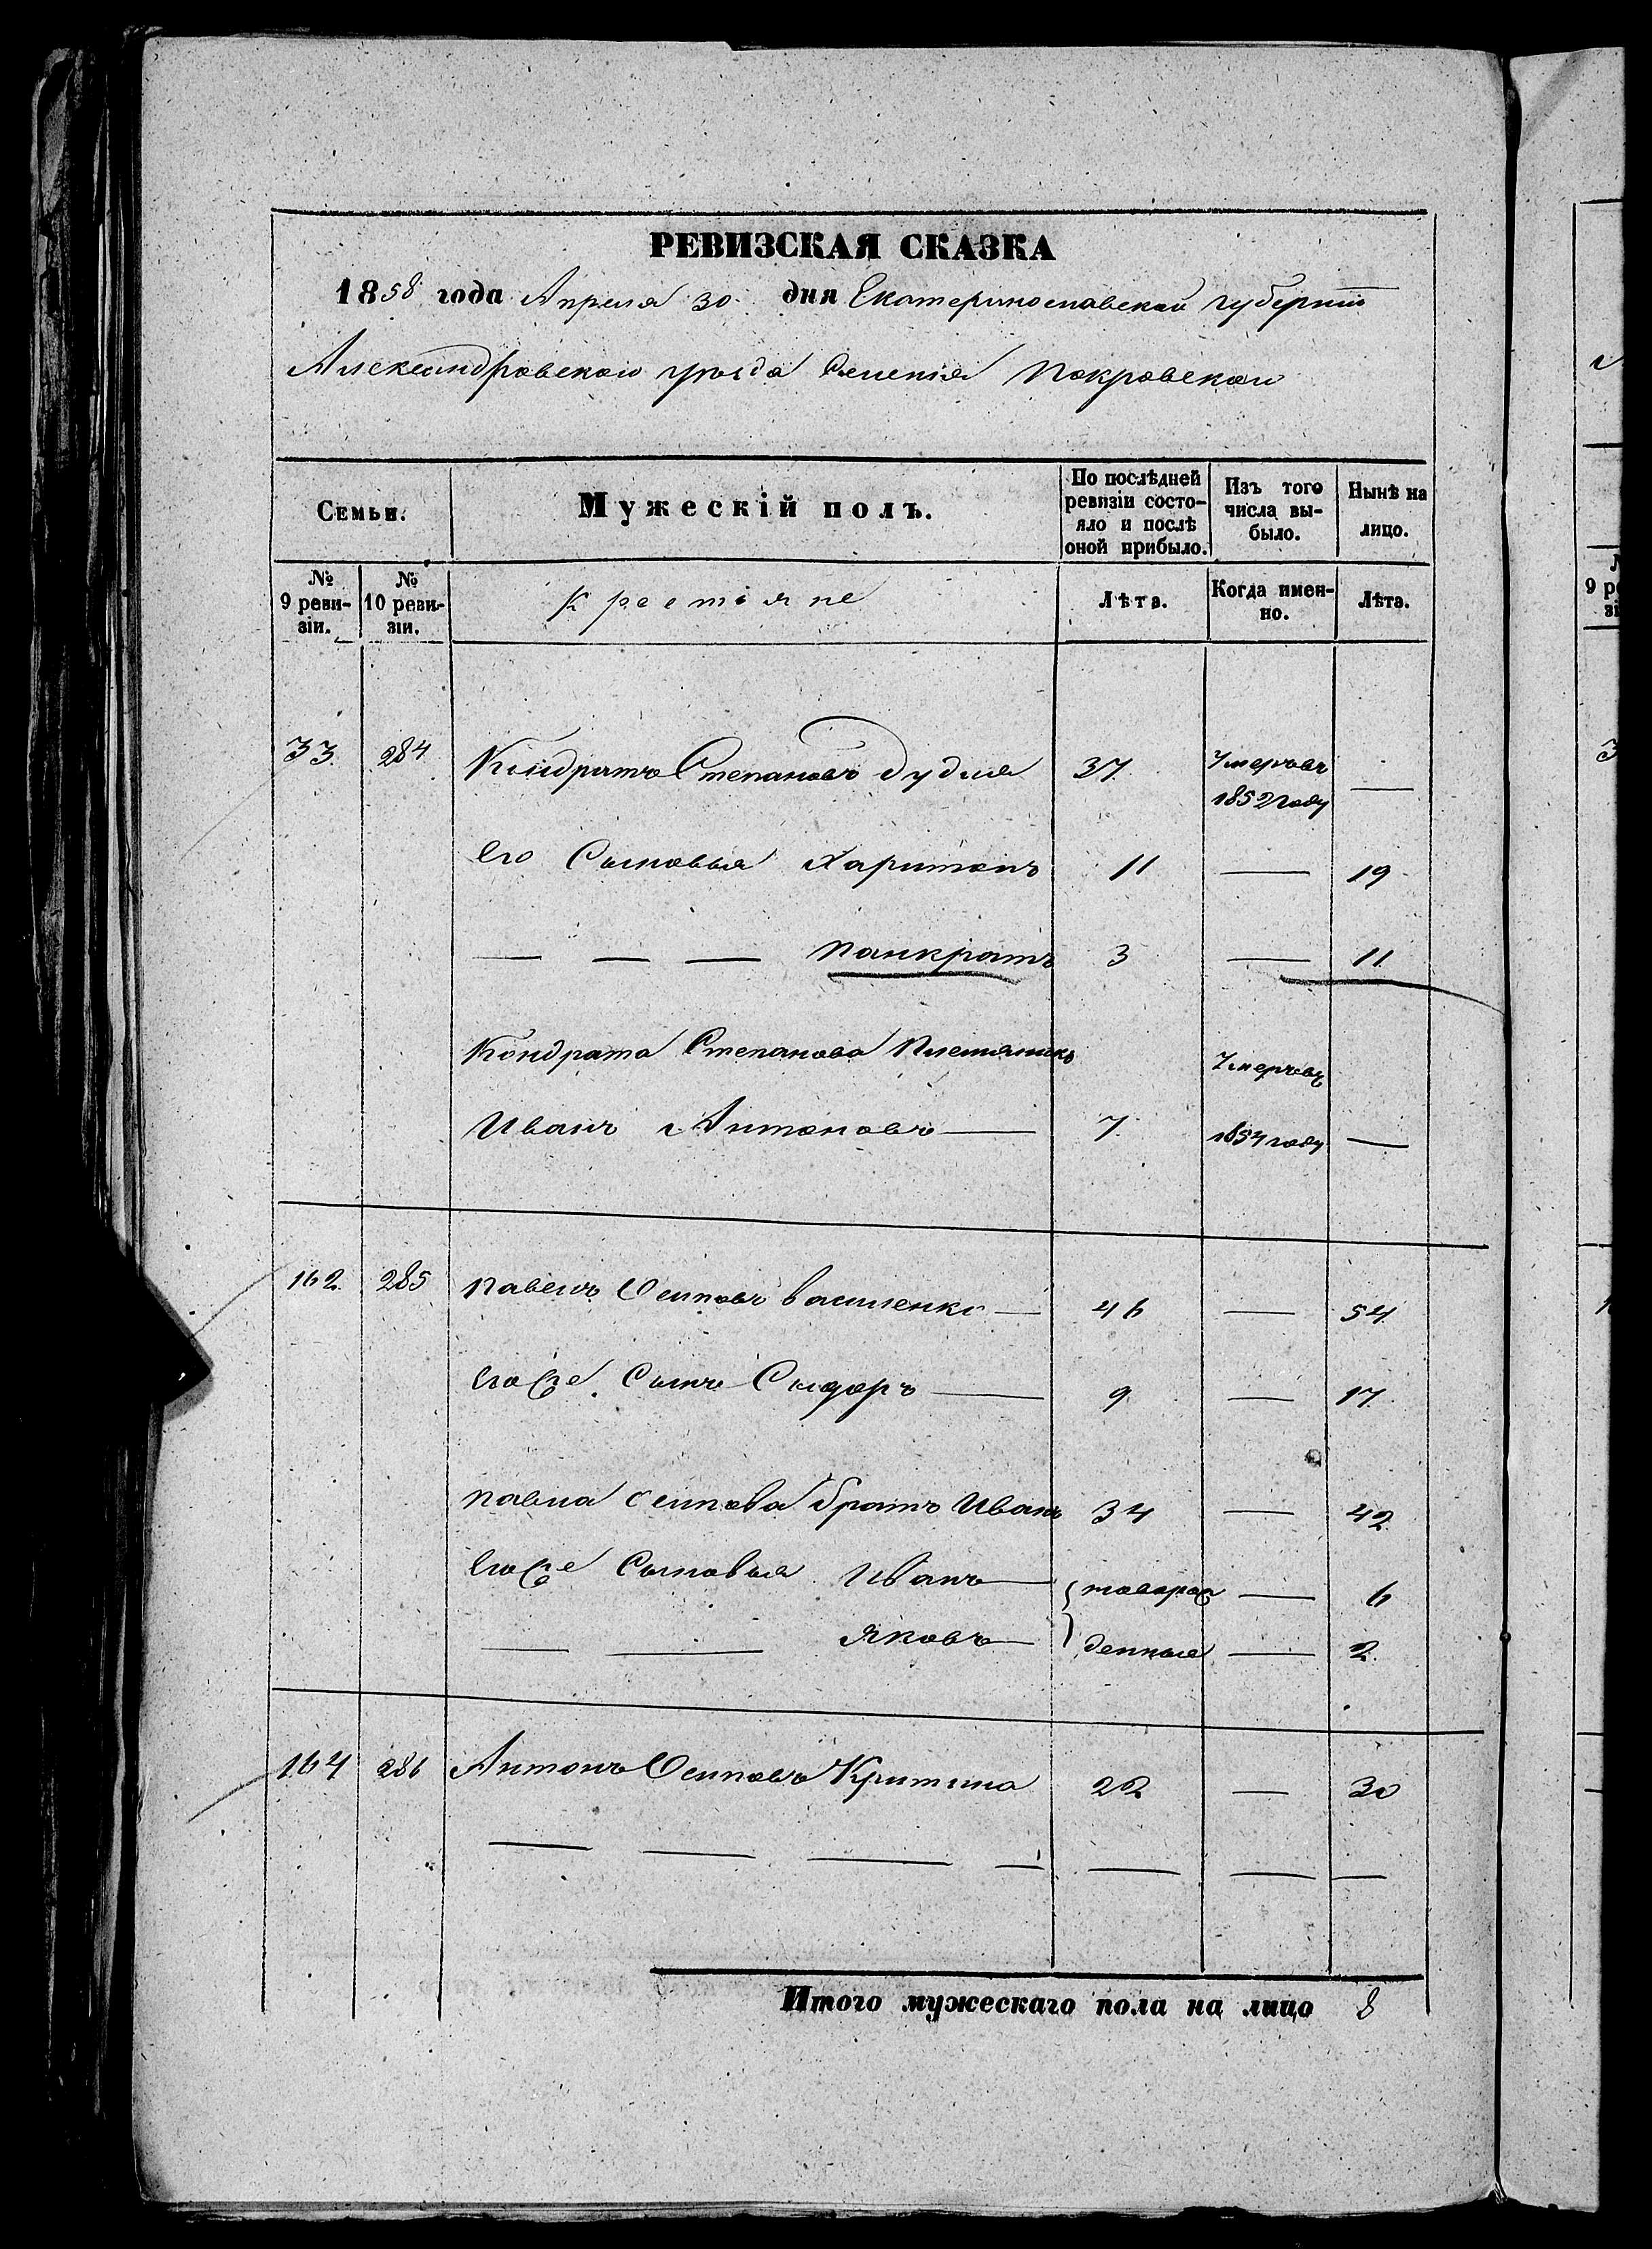 РЕВИЗСКАЯ СКАЗКА
1858 года Апреля 30 дня Екатеринославской губернии
Александровского уѣзда Селенія Покровского
Семьи.
Мужескій полъ.
По послѣдней ревизіи состо-
яло и послѣ
оной прибыло.
Изъ того
числа вы-
было.
Нынѣ на
лицо.
№
9 реви-
зіи.
№
10 реви-
зіи.
Крестіяне
Лѣта.
Когда имен-
но.
Лѣта.
33. 284 Кондратъ Степановъ Дудка 37. Умеръ въ —
1852 году
Его Сыновья Харитонъ 11 — 19
— — — Панкратъ 3 — 11
Кондрата Степанова Племяникъ Умеръ въ
Иванъ Антоновъ — 7. 1854 году —
162. 285 Павелъ Осиповъ Василенко — 46 — 54
Егоже Сынъ Сидоръ — 9 — 17
Павла Осипова братъ Иванъ 34 — 42
Егоже Сыновья Иванъ — новорож — 6
— — Яковъ — денные — 2
164 286 Антонъ Осиповъ 22 — 30
— — — — — — —
Итого мужескаго пола на лицо 8
9 ре
зі